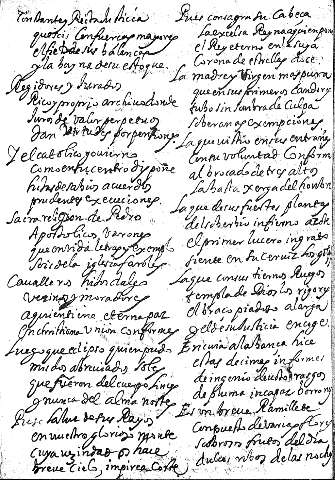 Constante, Recta Justicia
que sois con fuerças mayores
el fiel de sus balanças
y la bayna de su estoque.
Regidores y Jurados
Rico, proprio archivo donde
Juros de valor perpetuos
dan virtudes por pensiones
Y el catholico govierno
como en su centro dispone
hijas de sabios acuerdos
prudentes execuciones.
Sacra religion de Pedro
Apostolicos varones
que con vida letras y exemplo
sois de la iglesia faroles
Cavalleros hidalgos
vezinos y moradores
a quien tiene eterna paz
en christiana union conformes
Luego que eclipso quien pudo
mis dos abreviados soles
que fueron del cuerpo
y nunca del alma noches
Puse la luz de sus Rayos
en vuestro glorioso monte
cuya virtud os hace
breve cielo, impirea corte
Pues consagra su Cabeça
la excelsa Reyna a quien pone
el Rey eterno en la suya
Corona de estrellas doce.
La madre y Virgen mas pura
que en sus primeros candores
tubo sin sombra de culpa
soberanas exempciones.
La que vistio en su entrañas
con su voluntad conforme
al brocado de tres altos
la basta xerga del hombre
La que de sus fuertes plantas
del sobervio infierno
el primer lucero ingrato
siente en su cerviz los golpes
La que con sus tiernos Ruegos
templa de Dios los rigores
el braço piadoso alarga
y el de Justicia encoge
En cuia alabança hice
estas decimas informes
de ingenio devotos rasgos
de pluma incapaz borrones
Es un breve Ramillete
compuesto de varias flores
sabrosos frutos del dia
dulces ratos de las noches